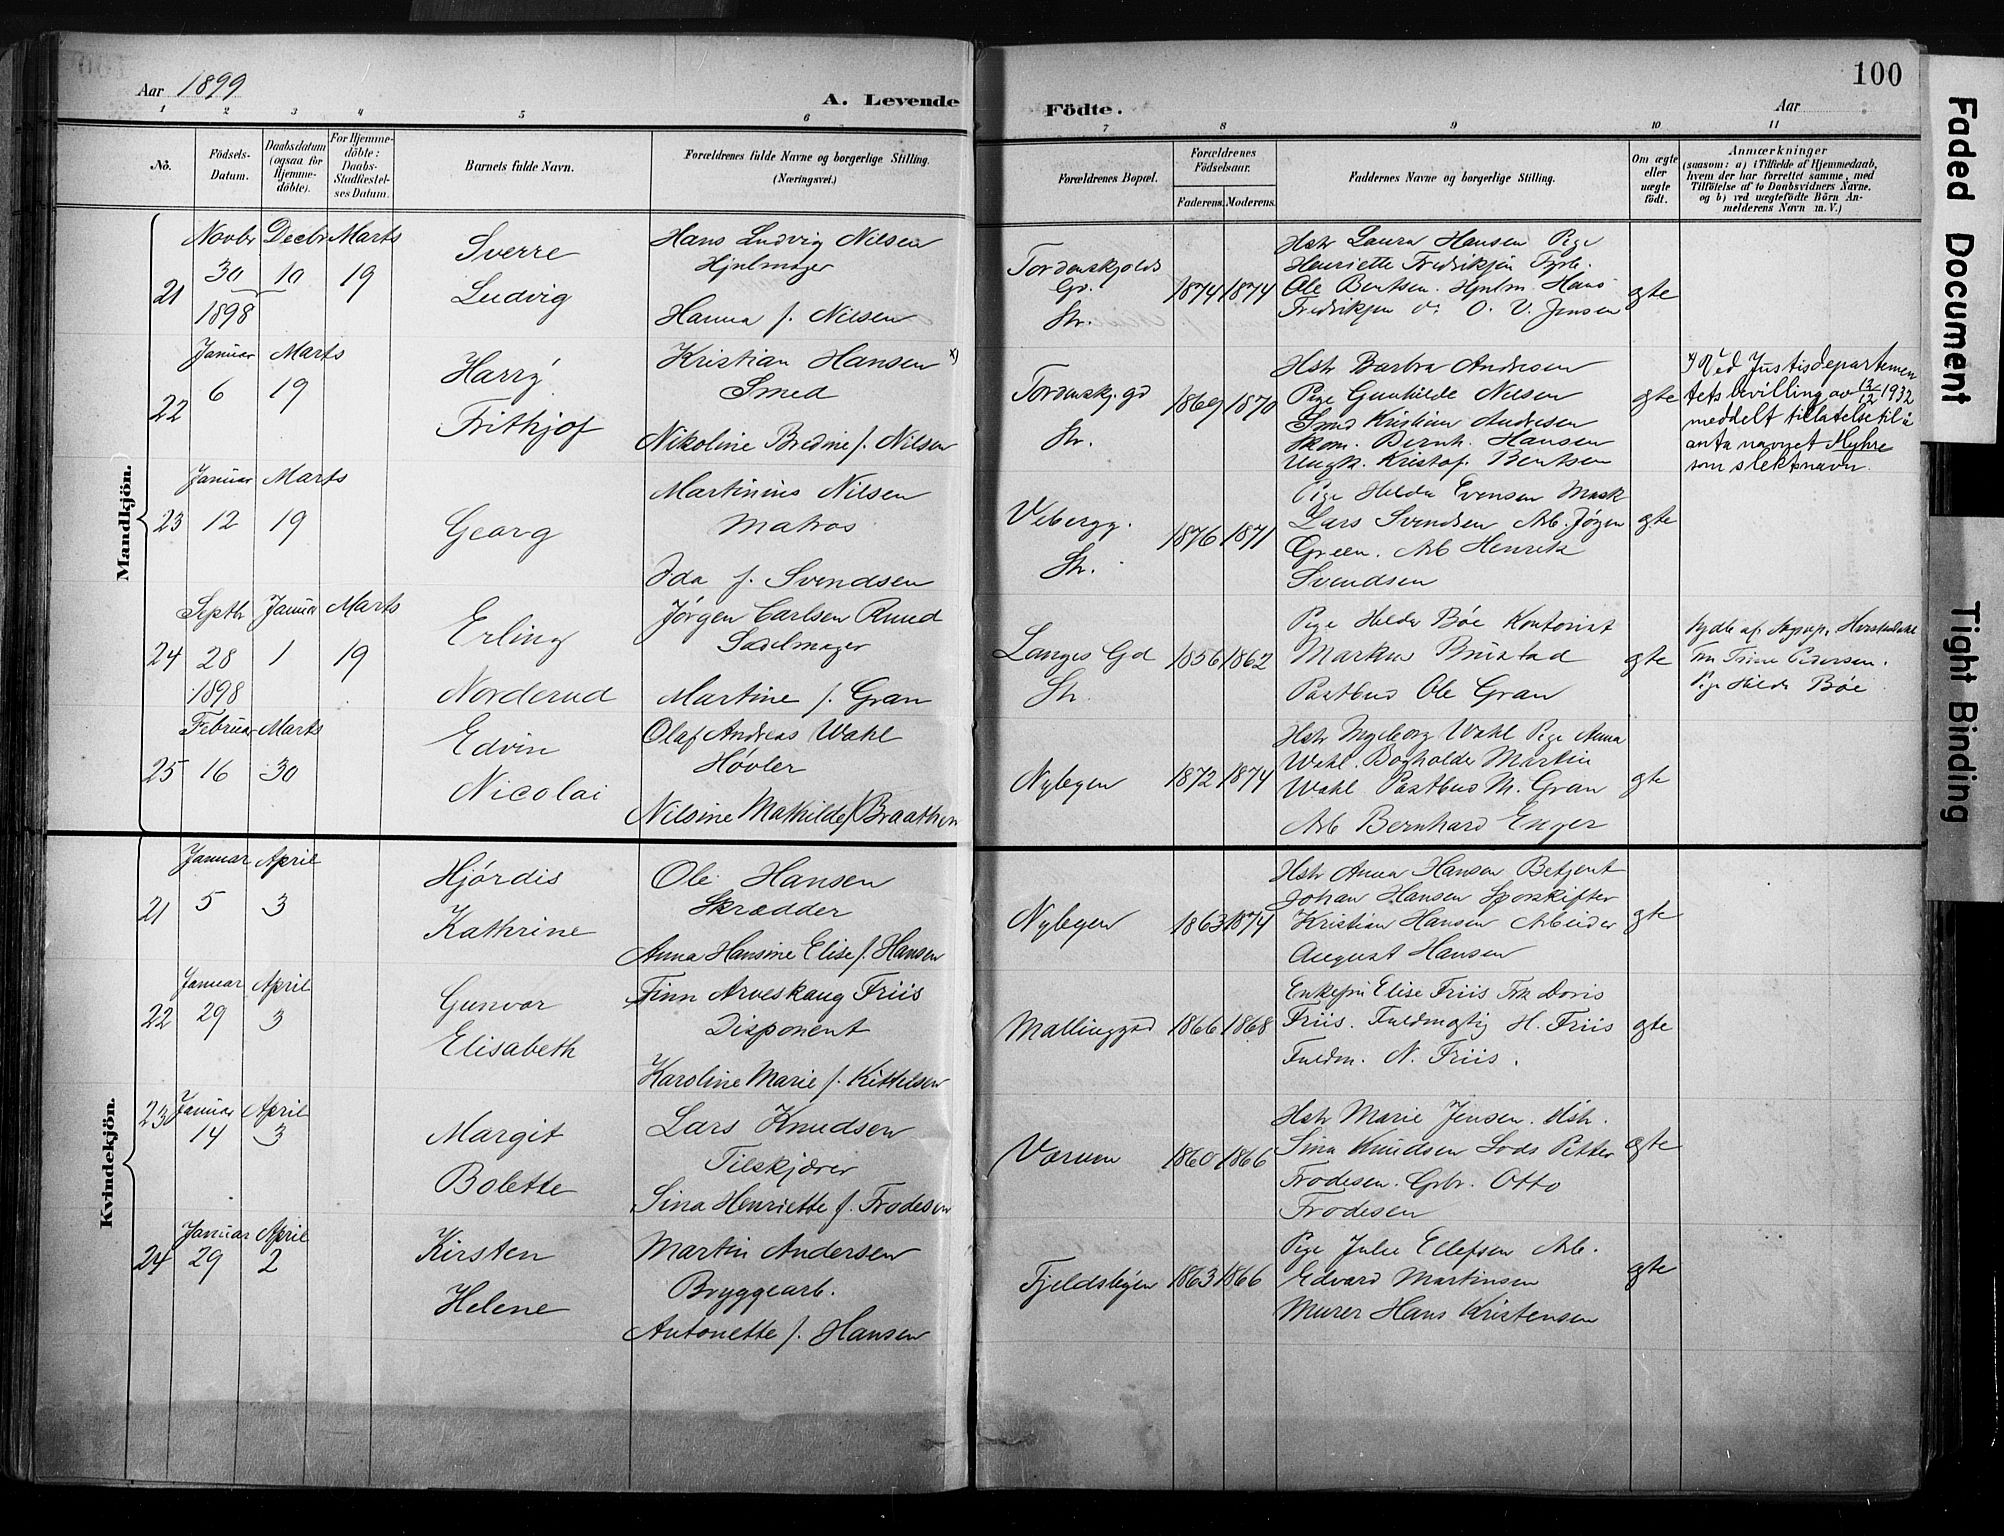 Aar 1899
A. Levende
Födte.
Aar
100
1 2 3 4 5 6 7 8 9 10 11
No.
Födsels-Datum.
Daabsdatum (ogsaa for Hjemmedöbte).
For Hjemmedöbte: Daabs-Stadfæstelses Datum.
Barnets fulde Navn.
Forældrenes fulde Navne og borgerlige Stilling. (Næringsvei.)
Forældrenes Bopæl.
Forældrenes Födselsaar.
Faderens. Moderens.
Faddernes Navne og borgerlige Stilling.
Om ægte eller uægte födt.
Anmærkninger
(saasom: a) i Tilfælde af Hjemmedaab,
hvem der har forrettet samme, med
Tilföielse af to Daabsvidners Navne.
og b) ved uægtefödte Börn Anmelderens Navn m. V.)
Mandkjön.
21
Novbr 30 1898
Decbr 10
Marts 19
Sverre
Ludvig
Hans Ludvig Nilsen
Hjulmager
Hanna f. Nilsen
Tordenskjolds
Gd.
Str.
1874 1874
Hstr Laura Hansen Pige
Henriette Fredriksen
Ole Bentsen. Hjulm. Hans
Fredriksen O. V. Jensen
ægte
22
Januar 6
Marts 19
Harry
Frithjof
Kristian Hansen x)
Smed
Nikoline Bredine f. Nilsen
Tordenskj. gd
Str.
1869 1870
Hstr Barbra Andresen
Pige Gunhilde Nilsen
Smed Kristian Andresen
Skom. Bernh. Hansen
Ungk. Kristof. Bentsen
ægte
x) Ved Justisdepartemen
tets bevilling av 12/12 1932
meddelt tillatelse til å
anta navnet Myhre
som slektsnavn.
23
Januar 12
Marts 19
Georg
Martinius Nilsen
Matros
Ida f. Svendsen
Vebergg.
Str.
1876 1871
Pige Helda Evensen Mask
Lars Svendsen Arb. Jørgen
Green. Arb Henrik
Svendsen
ægte
24
Septbr 28 1898
Januar 1
Marts 19
Erling
Norderud
Jørgen Carlsen Ruud
Sadelmager
Martine f. Gran
Langes Gd
Str.
1856 1862
Pige Helda Bøe Kontorist
Markus Brustad
Postbud Ole Gran
ægte
Hjdbt af
Trine Pedersen.
Pige Hilda Bøe
25
Februar 16
Marts 30
Edvin
Nicolai
Olaf Andreas Wahl
Høvler
Nilsine Mathilde f. Braathen
Nybyen
1872 1874
Hstr Ingeborg Wahl Pige Anna
Wahl. Bogholder Martin
Wahl Postbud M. Gran
Arb Bernhard Enger
ægte
Kvindekjön.
21
Januar 5
April 3
Hjørdis
Kathrine
Ole Hansen
Skrædder
Anna Hansine Elise f. Hansen
Nybyen
1863 1874
Hstr Anna Hansen Betjent
Johan Hansen Sporskifter
Kristian Hansen Arbeider
August Hansen
ægte
22
Januar 29
April 3
Gunvor
Elisabeth
Finn Arveskaug Friis
Disponent
Karoline Marie f. Kittelsen
Mallinggård
1866 1868
Enkefru Elise Friis Frk Doris
Friis. Fuldmægtig H. Friis
Fuldm. N. Friis.
ægte
23
Januar 14
April 3
Margit
Bolette
Lars Knudsen
Tilskjærer
Sina Henriette f. Frodesen
Værven
1860 1866
Hstr Marie Jensen. Hstr.
Sina Knudsen Lods Petter
Frodesen. Grbr. Otto
Frodesen
ægte
24
Januar 29
April 2
Kirsten
Helene
Martin Andersen
Bryggearb.
Antonette f. Hansen
Fjeldsbyen
1863 1866
Pige Julie Ellefsen Arb.
Edvard Martinsen
Murer Hans Kristensen
ægte
Faded Document
Tight Binding